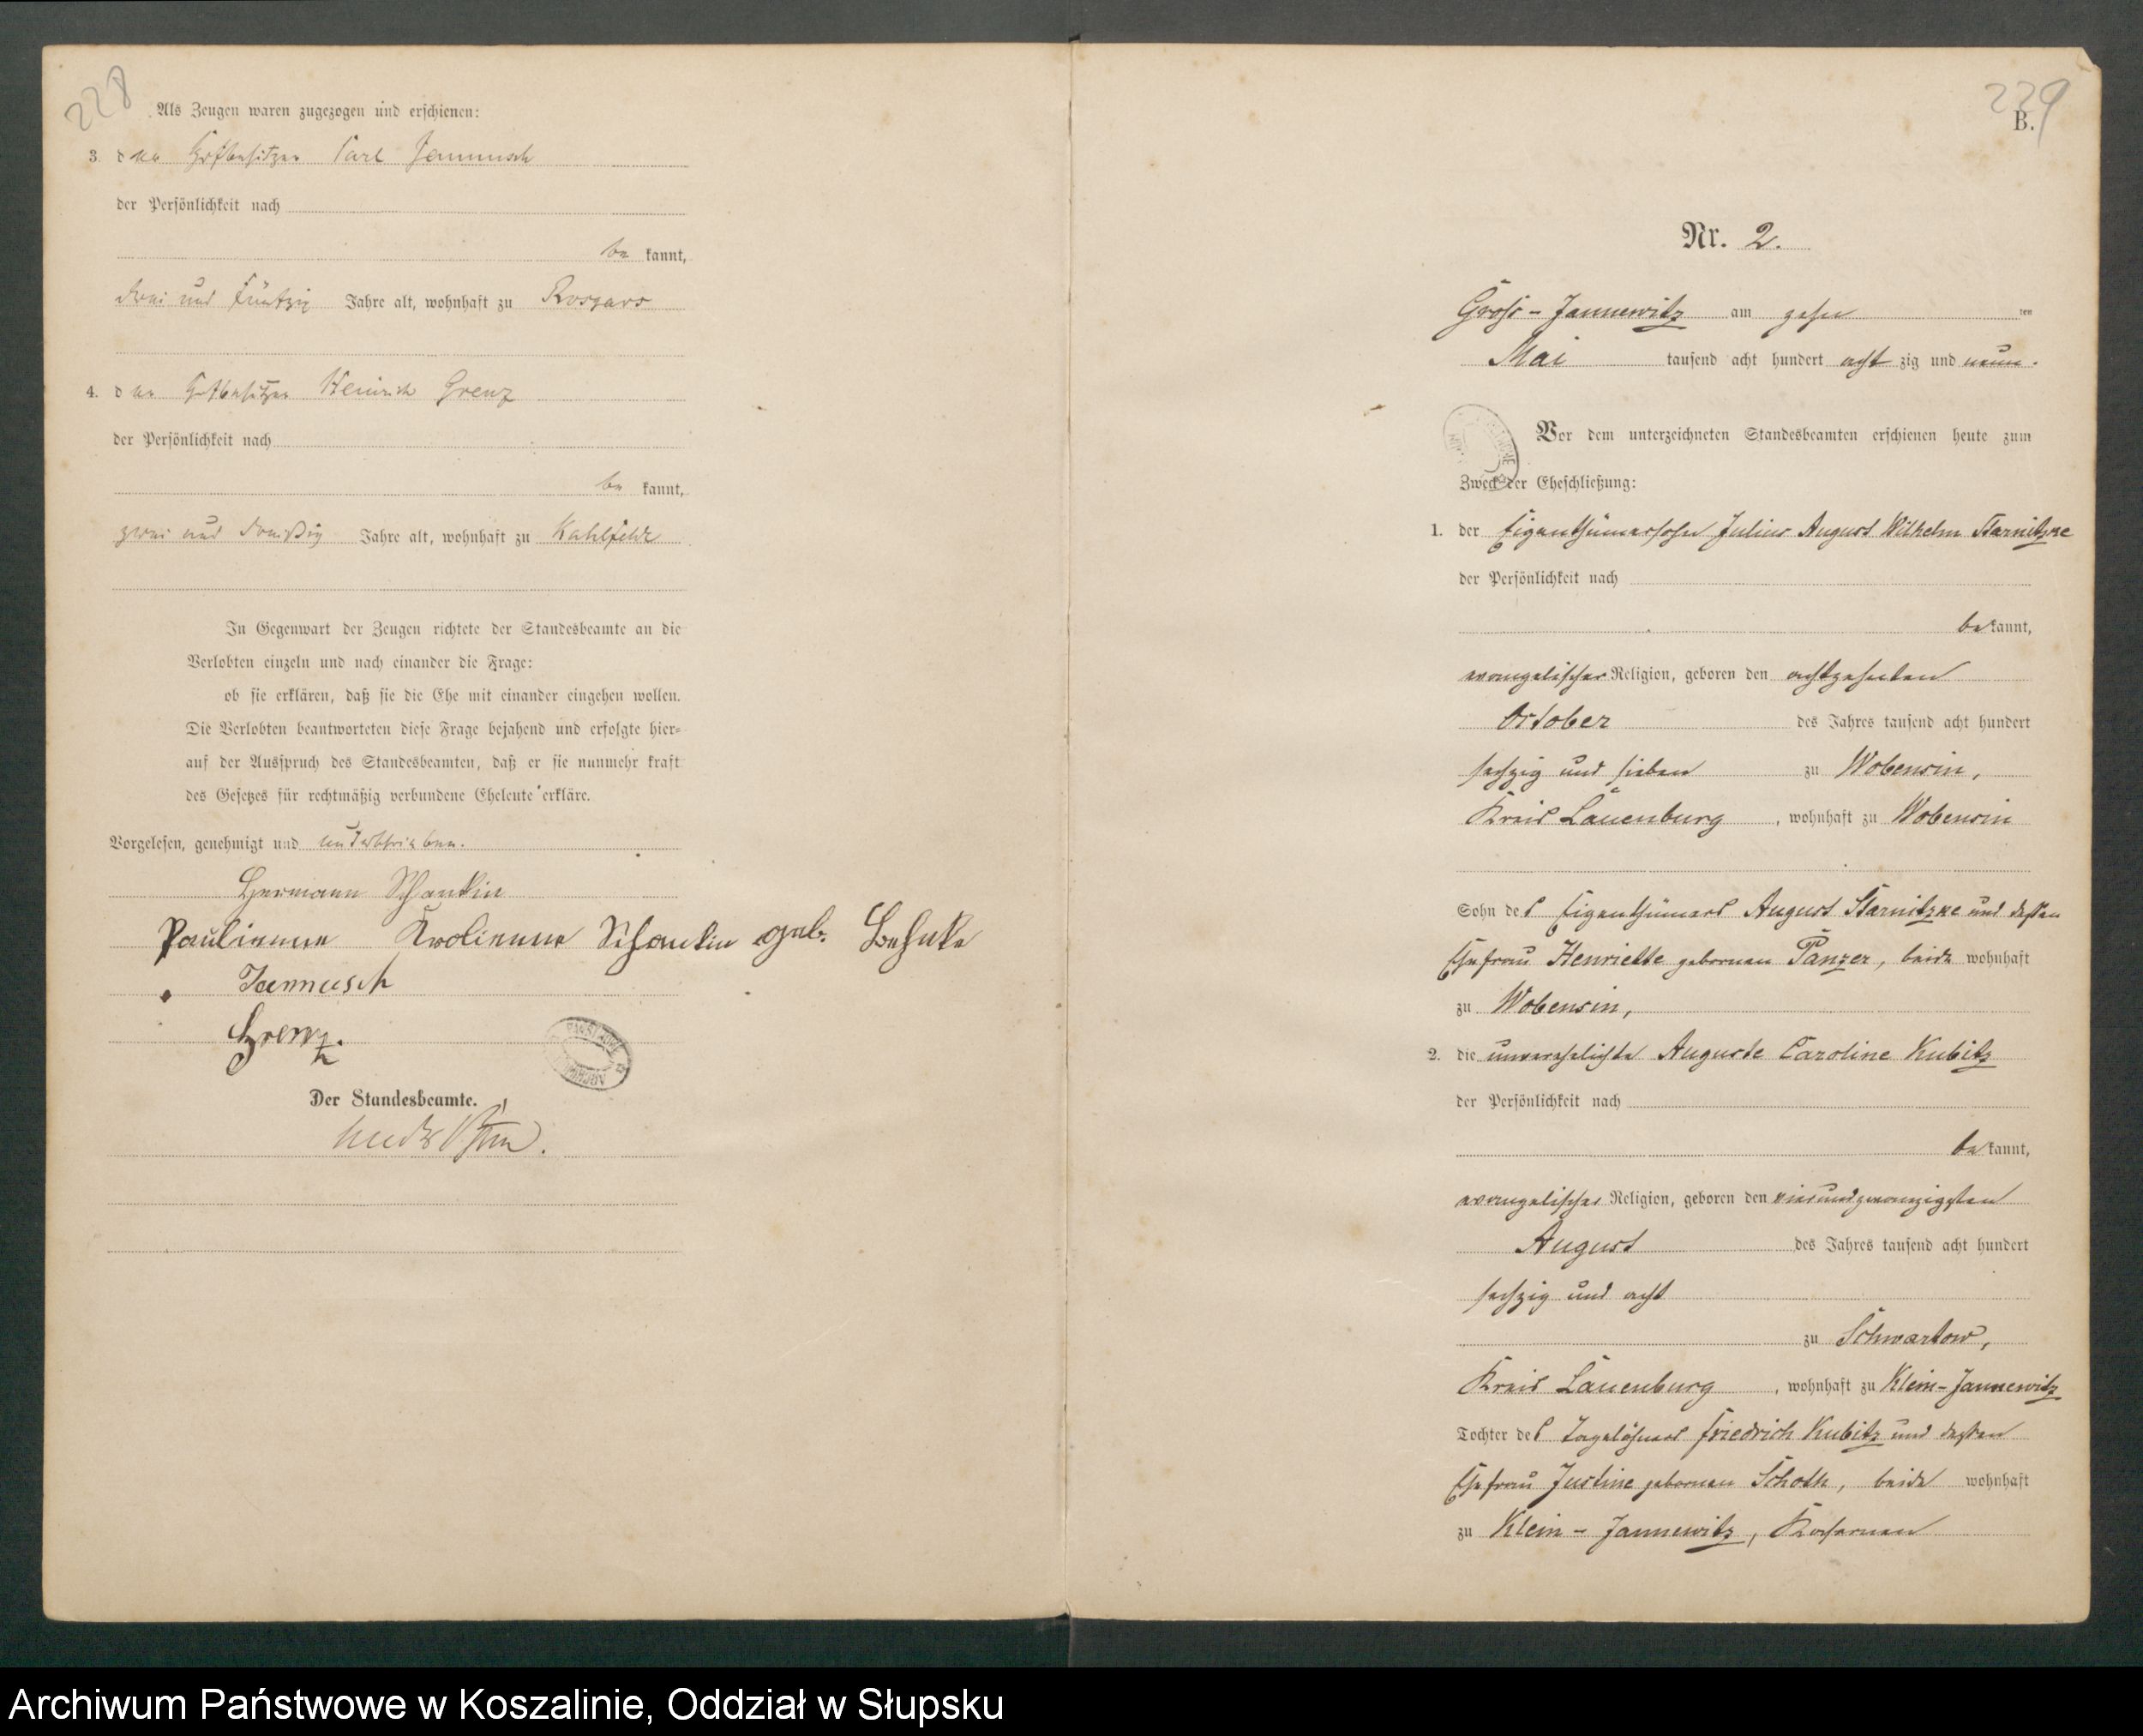 228
Als Zeugen waren zugezogen und erschienen:
3. der Hofbesitzer Carl Jannusch
der Persönlichkeit nach
be kannt,
drei und fünfzig Jahre alt, wohnhaft zu Rosgars
4. der Hofbesitzer Heinrich Grenz
der Persönlichkeit nach
be kannt,
zwei und dreißig Jahre alt, wohnhaft zu Kahlfelde
In Gegenwart der Zeugen richtete der Standesbeamte an die
Verlobten einzeln und nach einander die Frage:
ob sie erklären, daß sie die Ehe mit einander eingehen wollen.
Die Verlobten beantworteten diese Frage bejahend und erfolgte hier=
auf der Ausspruch des Standesbeamten, daß er sie nunmehr kraft
des Gesetzes für rechtmäßig verbundene Eheleute erkläre.
Vorgelesen, genehmigt und unterschrieben.
Hermann Schankin
Paulienne Karolienne Schankin geb. Behnke
Jannusch
Grenz.
Der Standesbeamte.
229
B.
Nr. 2.
Gross-Jannewitz am zehn ten
Mai tausend acht hundert acht zig und neun.
Vor dem unterzeichneten Standesbeamten erschienen heute zum
Zweck der Eheschließung:
1. der Eigenthümersohn Julius August Wilhelm Starnitzke
der Persönlichkeit nach
be kannt,
evangelischer Religion, geboren den achtzehnten
October des Jahres tausend acht hundert
sechzig und sieben zu Wobensin,
Kreis Lauenburg, wohnhaft zu Wobensin
Sohn des Eigenthümers August Starnitzke und dessen
Ehefrau Henriette gebornen Panzer, beide wohnhaft
zu Wobensin,
2. die unverehelichte Auguste Caroline Kubitz
der Persönlichkeit nach
be kannt,
evangelischer Religion, geboren den vierundzwanzigsten
August des Jahres tausend acht hundert
sechzig und acht
zu Schwartow,
Kreis Lauenburg, wohnhaft zu Klein-Jannewitz
Tochter des Tagelöhners Friedrich Kubitz und dessen
Ehefrau Justine gebornen Schoth, beide wohnhaft
zu Klein-Jannewitz,
Archiwum Państwowe w Koszalinie, Oddział w Słupsku